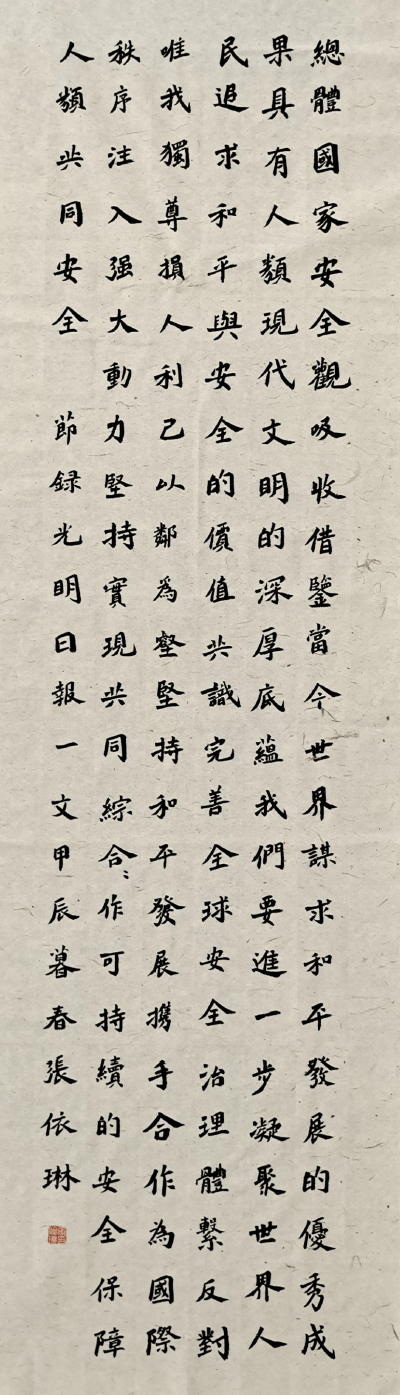 總體國家安全觀吸收借鑒當今世界謀求和平發展的優秀成
果具有人類現代文明的深厚底蘊我們要進一步凝聚世界人
民追求和平與安全的價值共識完善全球安全治理體繫反對
唯我獨尊損人利己以鄰為壑堅持和平發展携手合作為國際
秩序注入强大動力堅持實現共同綜合〻作可持續的安全保障
人類共同安全 節録光明日報一文甲辰暮春張依琳